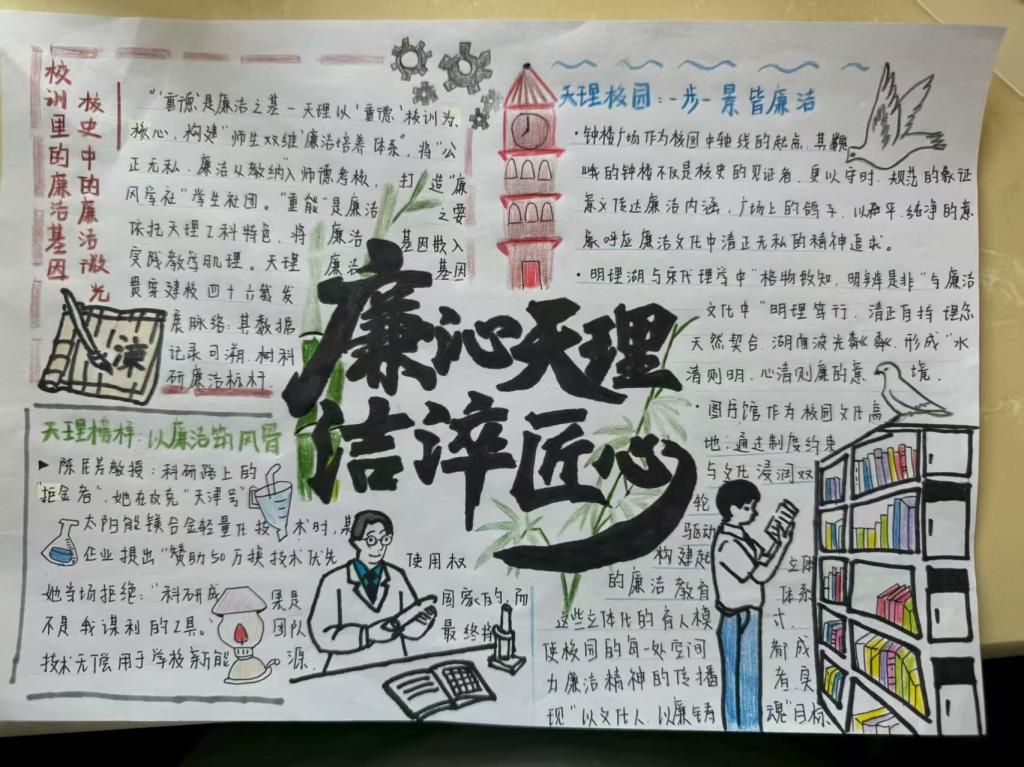 校训里的廉洁基因
校史中的廉洁微光
“‘重德’是廉洁之基－天理以‘重德’校训为
核心，构建“师生双维‘廉洁培养体系”，将“公
正无私、廉洁从教纳入师德考核，打造“廉
风学社”学生社团。“重能”是廉洁之要
依托天理工科特色，将廉洁基因嵌入
实践教学肌理。天理廉洁基因
贯穿建校四十六载发
展脉络：其数据
记录可溯，树科
研廉洁标杆．
谏
天理校园：一步一景皆廉洁
·钟楼广场作为校园中轴线的起点，其巍
峨的钟楼不仅是校史的见证者，更以守时、规范的象征
意义传达廉洁内涵，广场上的鸽子，以和平、纯净的意
象呼应廉洁文化中清正无私的精神追求。
·明理湖与宋代理学中“格物致知，明辨是非”与廉洁
文化中“明理笃行，清正自持理念
天然契合，湖面波光粼粼，形成“水
清则明，心清则廉的意境．
·图书馆作为校园文化高
地：通过制度约束
与文化浸润双
轮
驱动
构建起立体
的廉洁教育体系
这些立体化的育人模式．
使校园的每一处空间都成
为廉洁精神的传播者，实
现“以文化人，以廉铸魂”目标．
廉沁天理
洁淬匠心
天理榜样：以廉洁筑风骨
▶陈民芳教授：科研路上的
“拒金者”，她在攻克“天津号”
太阳能镁合金轻量化技术时，某
企业提出“赞助50万换技术优先使用权
她当场拒绝：“科研成果是国家的，而
不是我谋利的工具。”团队最终将
技术无偿用于学校新能源．